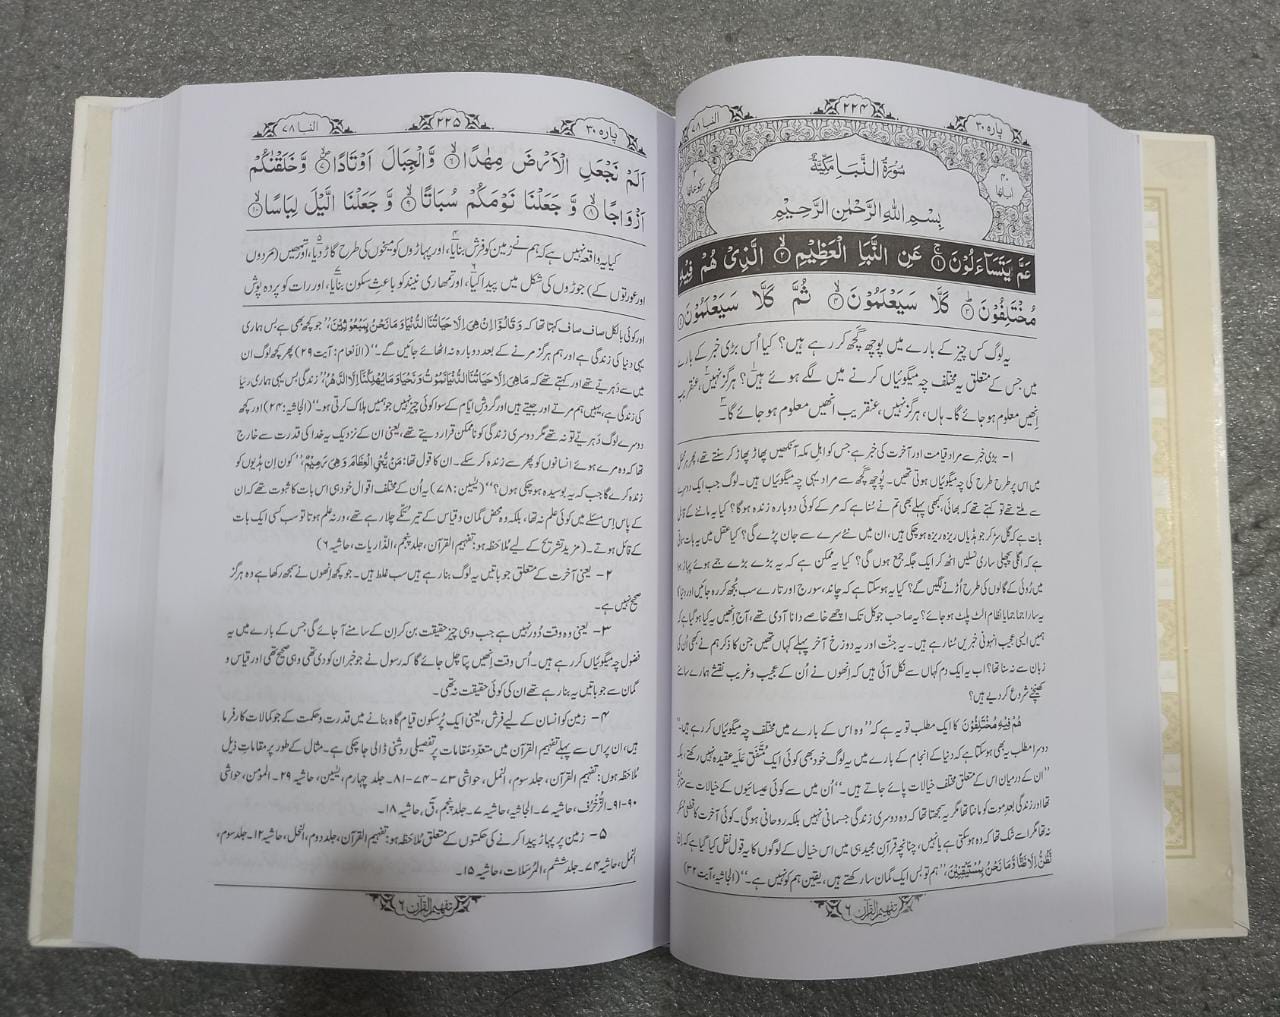 پارہ ۳۰
۲۲۴
النبا ۷۸
سُوْرَةُ النَّبَاِ مَكِّيَّةٌ
بِسْمِ اللهِ الرَّحْمٰنِ الرَّحِيْمِ
عَمَّ يَتَسَآءَلُوْنَ ۱ عَنِ النَّبَاِ الْعَظِيْمِ ۲ الَّذِيْ هُمْ فِيْهِ
مُخْتَلِفُوْنَ ۳ كَلَّا سَيَعْلَمُوْنَ ۴ ثُمَّ كَلَّا سَيَعْلَمُوْنَ ۵
یہ لوگ کس چیز کے بارے میں پوچھ گچھ کر رہے ہیں؟ کیا اُس بڑی خبر کے بارے
میں جس کے متعلق یہ مختلف چہ میگوئیاں کرنے میں لگے ہوئے ہیں؟ ہرگز نہیں، عنقریب
اِنھیں معلوم ہو جائے گا۔ ہاں، ہرگز نہیں، عنقریب انھیں معلوم ہو جائے گا۔
۱- بڑی خبر سے مراد قیامت اور آخرت کی خبر ہے جس کو اہل مکہ آنکھیں پھاڑ پھاڑ کر سنتے تھے، پھر ہر محفل
میں اس پر طرح طرح کی چہ میگوئیاں ہوتی تھیں۔ پُوچھ گچھ سے مراد یہی چہ میگوئیاں ہیں۔ لوگ جب ایک دوسرے
سے ملتے تھے تو کہتے تھے کہ بھائی، کبھی پہلے بھی تم نے سُنا ہے کہ مر کے کوئی دوبارہ زندہ ہوگا؟ کیا یہ ماننے کے قابل
بات ہے کہ گل سڑ کر جو ہڈیاں ریزہ ریزہ ہو چکی ہیں، ان میں نئے سرے سے جان پڑے گی؟ کیا عقل میں یہ بات سماتی
ہے کہ اگلی پچھلی ساری نسلیں اٹھ کر ایک جگہ جمع ہوں گی؟ کیا یہ ممکن ہے کہ یہ بڑے بڑے جمے ہوئے پہاڑ ہوا
میں رُوئی کے گالوں کی طرح اُڑنے لگیں گے؟ کیا یہ ہو سکتا ہے کہ چاند، سورج اور تارے سب بُجھ کر رہ جائیں اور دنیا
یہ سارا جما جمایا نظام الٹ پلٹ ہو جائے؟ یہ صاحب جو کل تک اچھے خاصے دانا آدمی تھے، آج اِنھیں یہ کیا ہوگیا ہے کہ
ہمیں ایسی عجیب انہونی خبریں سنا رہے ہیں۔ یہ جنّت اور یہ دوزخ آخر پہلے کہاں تھیں جن کا ذکر ہم نے کبھی اُن کی
زبان سے نہ سنا تھا؟ اب یہ ایک دم کہاں سے نکل آئی ہیں کہ اِنھوں نے اُن کے عجیب و غریب نقشے ہمارے سامنے
کھینچنے شروع کر دیے ہیں؟
هُمْ فِيْهِ مُخْتَلِفُوْنَ کا ایک مطلب تو یہ ہے کہ ”وہ اس کے بارے میں مختلف چہ میگوئیاں کر رہے ہیں۔“
دوسرا مطلب یہ بھی ہو سکتا ہے کہ دنیا کے انجام کے بارے میں یہ لوگ خود بھی کوئی ایک مُتَّفَق عَلَیہ عقیدہ نہیں رکھتے، بلکہ
”ان کے درمیان اس کے متعلق مختلف خیالات پائے جاتے ہیں۔“ اُن میں سے کوئی عیسائیوں کے خیالات سے متاثر
تھا اور زندگی بعدِ موت کو مانتا تھا مگر یہ سمجھتا تھا کہ وہ دوسری زندگی جسمانی نہیں بلکہ روحانی ہوگی۔ کوئی آخرت کا قطعی منکر
نہ تھا مگر اسے شک تھا کہ وہ ہو سکتی ہے یا نہیں، چنانچہ قرآن مجید ہی میں اس خیال کے لوگوں کا یہ قول نقل کیا گیا ہے کہ اِنْ
نَّظُنُّ اِلَّا ظَنًّا وَّمَا نَحْنُ بِمُسْتَيْقِنِيْنَ، ”ہم تو بس ایک گمان سا رکھتے ہیں، یقین ہم کو نہیں ہے۔“ (الجاثیہ، آیت ۳۲)
تفہیم القرآن ۶
پارہ ۳۰
۲۲۵
النبا ۷۸
اَلَمْ نَجْعَلِ الْاَرْضَ مِهٰدًا ۶ وَّالْجِبَالَ اَوْتَادًا ۷ وَّخَلَقْنٰكُمْ
اَزْوَاجًا ۸ وَّ جَعَلْنَا نَوْمَكُمْ سُبَاتًا ۹ وَّ جَعَلْنَا الَّيْلَ لِبَاسًا ۱۰
کیا یہ واقعہ نہیں ہے کہ ہم نے زمین کو فرش بنایا،۴ اور پہاڑوں کو میخوں کی طرح گاڑ دیا،۵ اور تمھیں (مَردوں
اور عورتوں کے) جوڑوں کی شکل میں پیدا کیا،۶ اور تمھاری نیند کو باعثِ سکون بنایا،۷ اور رات کو پردہ پوش
اور کوئی بالکل صاف صاف کہتا تھا کہ وَقَالُوْٓا اِنْ هِيَ اِلَّا حَيَاتُنَا الدُّنْيَا وَمَا نَحْنُ بِمَبْعُوْثِيْنَ، ”جو کچھ بھی ہے بس ہماری
یہی دنیا کی زندگی ہے اور ہم ہرگز مرنے کے بعد دوبارہ نہ اٹھائے جائیں گے۔“ (الانعام: آیت ۲۹) پھر کچھ لوگ ان
میں سے دَہریے تھے اور کہتے تھے کہ مَا هِيَ اِلَّا حَيَاتُنَا الدُّنْيَا نَمُوْتُ وَنَحْيَا وَمَا يُهْلِكُنَآ اِلَّا الدَّهْرُ، ”زندگی بس یہی ہماری دنیا
کی زندگی ہے، یہیں ہم مرتے اور جیتے ہیں اور گردشِ ایّام کے سوا کوئی چیز نہیں جو ہمیں ہلاک کرتی ہو۔“ (الجاثیہ: ۲۴) اور کچھ
دوسرے لوگ دَہریے تو نہ تھے مگر دوسری زندگی کو ناممکن قرار دیتے تھے، یعنی ان کے نزدیک یہ خدا کی قدرت سے خارج
تھا کہ وہ مرے ہوئے انسانوں کو پھر سے زندہ کر سکے۔ ان کا قول تھا: مَنْ يُّحْيِ الْعِظَامَ وَهِيَ رَمِيْمٌ، ”کون اِن ہڈیوں کو
زندہ کرے گا جب کہ یہ بوسیدہ ہو چکی ہوں؟“ (یٰسین: ۷۸) یہ اُن کے مختلف اقوال خود ہی اس بات کا ثبوت تھے کہ ان
کے پاس اِس مسئلے میں کوئی علم نہ تھا، بلکہ وہ محض گمان و قیاس کے تیر تُکّے چلا رہے تھے، ورنہ علم ہوتا تو سب کسی ایک بات
کے قائل ہوتے۔ (مزید تشریح کے لیے مُلاحَظہ ہو: تفہیم القرآن، جلد پنجم، الذّاریات، حاشیہ ۶)
۲- یعنی آخرت کے متعلق جو باتیں یہ لوگ بنا رہے ہیں سب غلط ہیں۔ جو کچھ اِنھوں نے سمجھ رکھا ہے وہ ہرگز
صحیح نہیں ہے۔
۳- یعنی وہ وقت دُور نہیں ہے جب وہی چیز حقیقت بن کر اِن کے سامنے آجائے گی جس کے بارے میں یہ
فضول چہ میگوئیاں کر رہے ہیں۔ اُس وقت اِنھیں پتا چل جائے گا کہ رسول نے جو خبر ان کو دی تھی وہی صحیح تھی اور قیاس و
گمان سے جو باتیں یہ بنا رہے تھے ان کی کوئی حقیقت نہ تھی۔
۴- زمین کو انسان کے لیے فرش، یعنی ایک پُرسکون قیام گاہ بنانے میں قدرت و حکمت کے جو کمالات کارفرما
ہیں، ان پر اس سے پہلے تفہیم القرآن میں متعدّد مَقامات پر تفصیلی روشنی ڈالی جا چکی ہے۔ مثال کے طور پر مقاماتِ ذیل
مُلاحَظہ ہوں: تفہیم القرآن، جلد سوم، النمل، حواشی ۷۳-۷۴-۸۱۔ جلد چہارم، یٰسین، حاشیہ ۲۹۔ المؤمن، حواشی
۹۰-۹۱۔ الزُّخرُف، حاشیہ ۷۔ الجاثیہ، حاشیہ ۷۔ جلد پنجم، قٓ، حاشیہ ۱۸۔
۵- زمین پر پہاڑ پیدا کرنے کی حکمتوں کے متعلق مُلاحَظہ ہو: تفہیم القرآن، جلد دوم، النحل، حاشیہ ۱۲۔ جلد سوم،
النمل، حاشیہ ۷۴۔ جلد ششم، المُرسَلات، حاشیہ ۱۵۔
تفہیم القرآن ۶